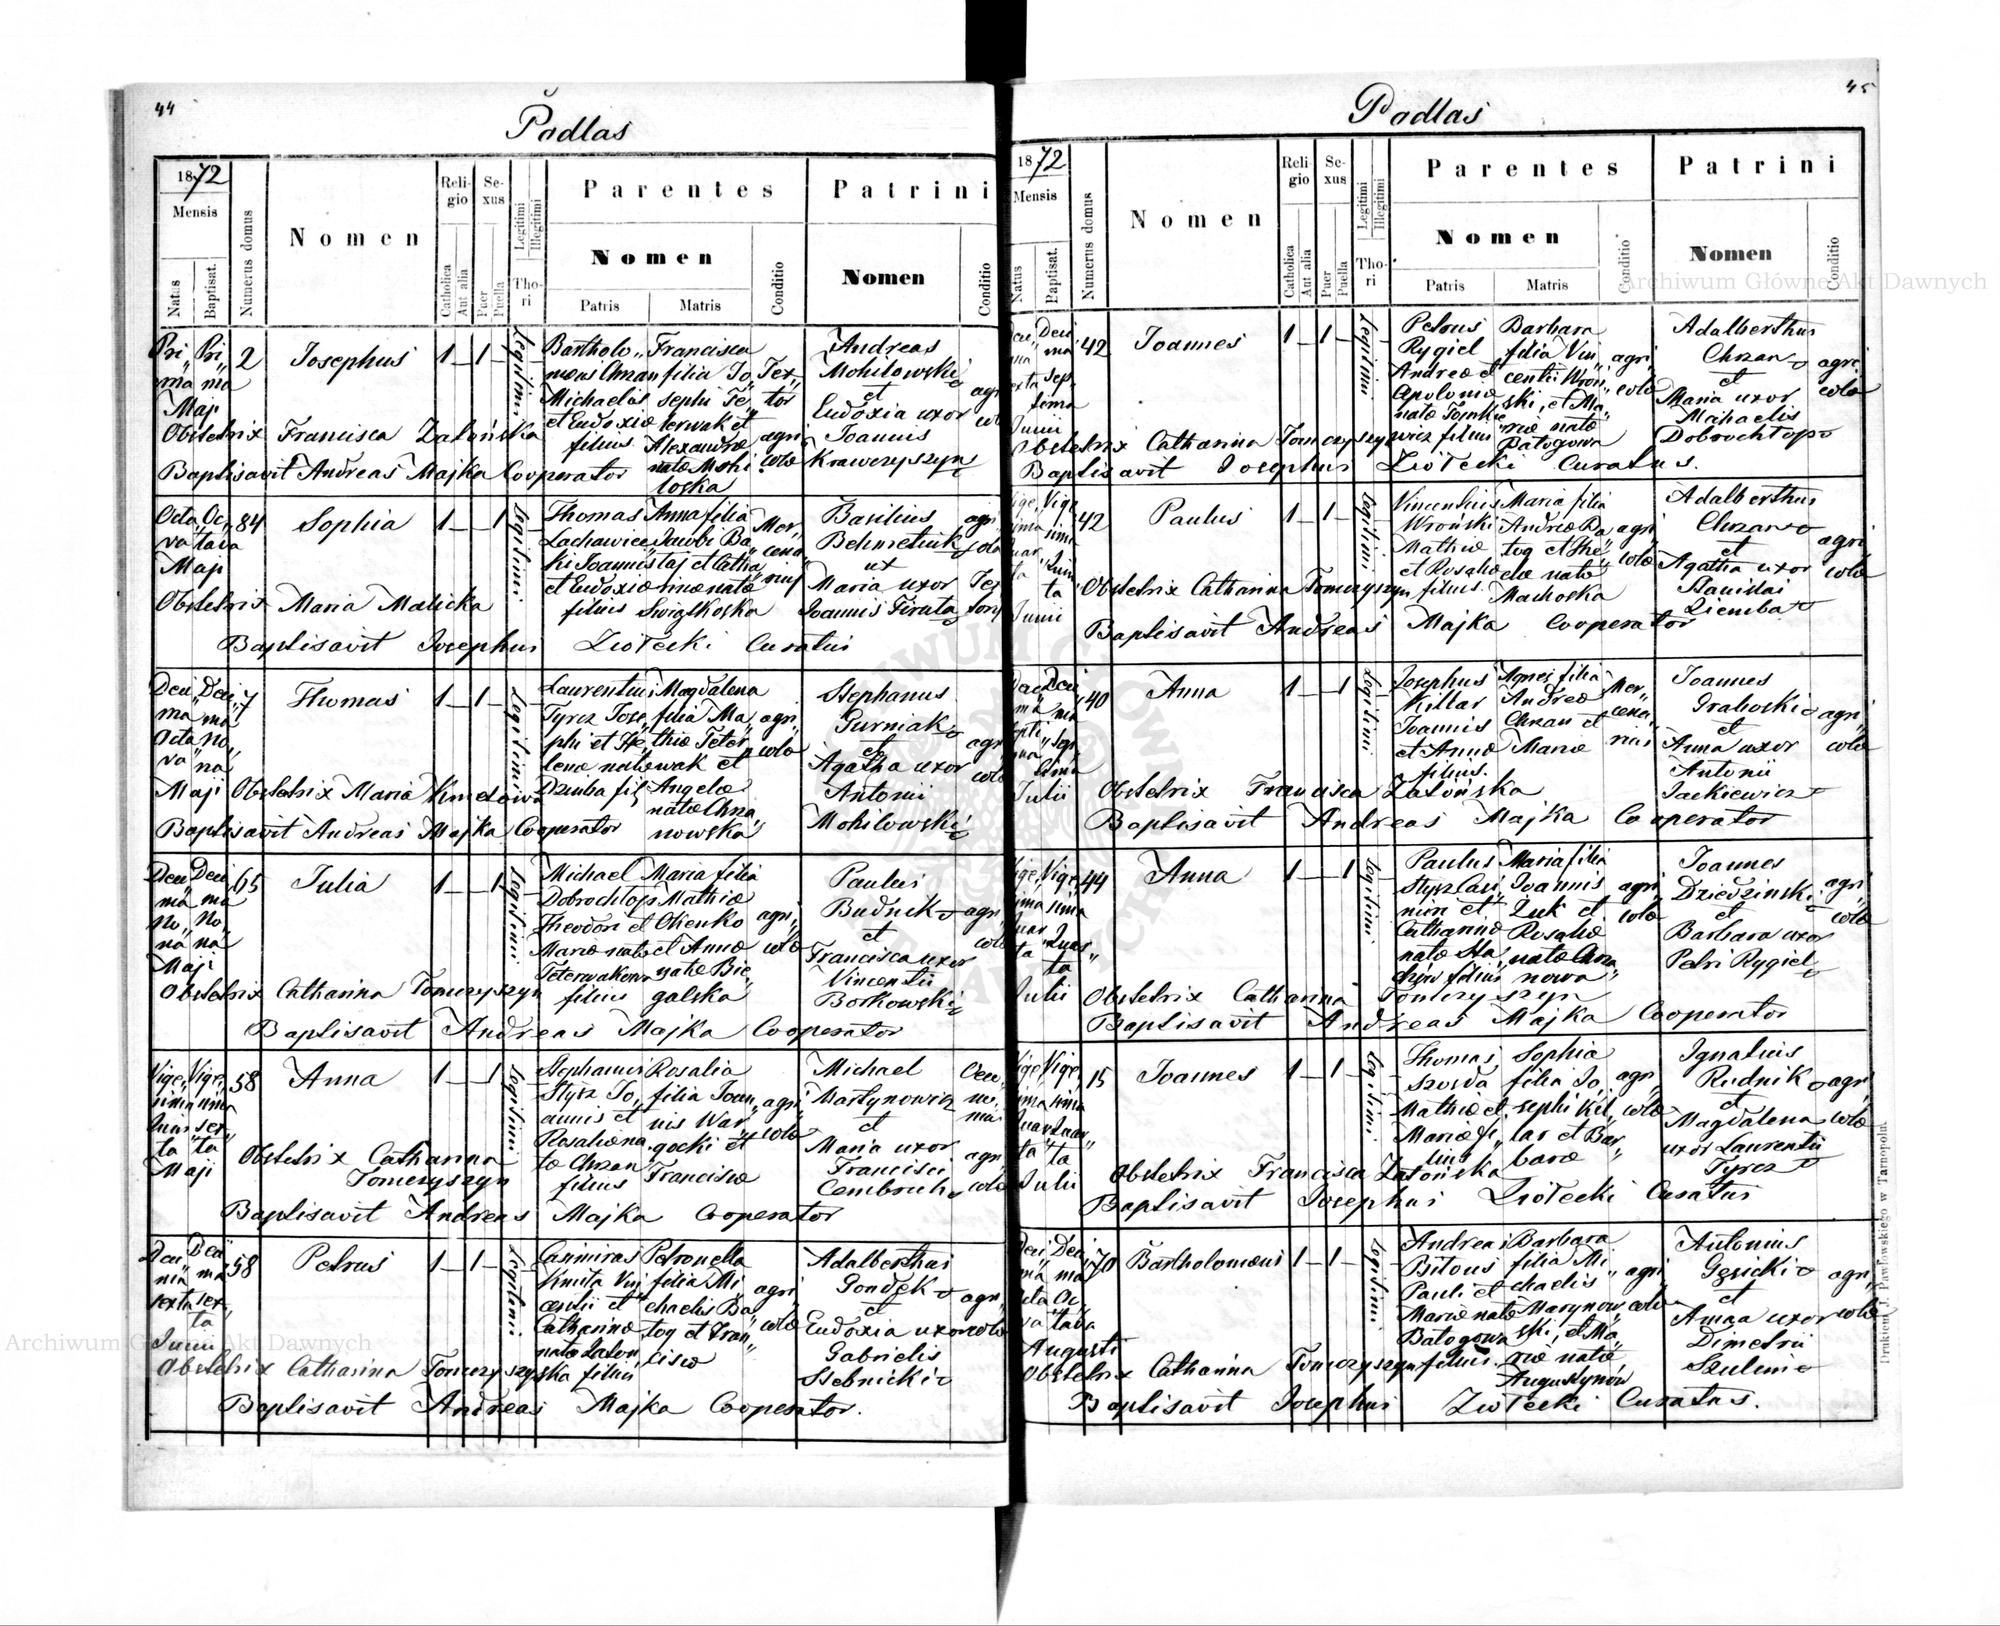 44
Podlas
1872
Mensis
Natus
Baptisat.
Numerus domus
Nomen
Religio
Catholica
Aut alia
Sexus
Puer
Puella
Legitimi
Illegitimi
Thori
Parentes
Nomen
Patris
Matris
Conditio
Patrini
Nomen
Conditio
Prima Maji
Prima
2
Josephus
1 1
Legitimi
Bartholo„
meus Chzan
Michaelis
et Eudoxiæ
filius
Francisca
filia Jo
sephi Te„
terwak et
Alexandræ
natæ Mohi„
loska
Tex„
tor
agri
colæ
Andreas
Mohilowski
et
Eudoxia uxor
Joannis
Krawczyszyn
Obstetrix Francisca Zatońska
Baptisavit Andreas Majka Cooperator
Octa„
va
Maji
Oc„
tava
84
Sophia
1 1
Legitimi
Thomas
Lachowicc
ki Joannis
et Eudoxiæ
filius
Anna filia
Jacobi Ba„
taj et Catha„
rinæ natæ
Swiątkoska
Mer„
cena„
rius
Basilius
Behmetiuk
et
Maria uxor
Joannis Firuta
Obstetrix Maria Malicka
Baptisavit Josephus Ziółecki Curatus
Deci„
ma
Octa„
va
Maji
Deci„
ma
No„
na
7
Thomas
1 1
Legitimi
Laurentius
Tyrcz Jose„
phi et He„
lenæ natæ
Dziuba fil
Magdalena
filia Ma„
thiæ Teter„
wak et
Angelæ
natæ Chrza„
nowska
agri„
colæ
Stephanus
Gurniak
et
Agatha uxor
Antoni
Mohilowski
Obstetrix Maria Kmetowa
Baptisavit Andreas Majka Cooperator
Deci„
ma
No„
na
Maji
Deci„
ma
No„
na
65
Julia
1 1
Legitimi
Michael
Dobrochtop
Theodori et
Mariæ natæ
Teterwakowa
filius
Maria filia
Mathiæ
Olienko
et Annæ
natæ Bie„
galska
agri„
colæ
Paulus
Budnik
et
Francisca uxor
Vincentii
Borkowski
agri„
colæ
Obstetrix Catharina Tomczyszyn
Baptisavit Andreas Majka Cooperator
Vige„
sima
Quar„
ta
Maji
Vige„
sima
sex„
ta
58
Anna
1 1
Legitimi
Stephanus
Styrz Jo„
annis et
Rosaliæ na„
tæ Chzan
filius
Rosalia
filia Joan„
nis War„
gocki et
Franciscæ
agri„
colæ
Michael
Martynowicz
et
Maria uxor
Francisci
Cembruch
agri„
colæ
Obstetrix Catharina
Tomczyszyn
Baptisavit Andreas Majka Cooperator
Deci„
ma
sexta
Junii
Deci„
ma
sex„
ta
58
Petrus
1 1
Legitimi
Casimirus
Kmita Vin„
centii et
Catharinæ
natæ Zaton„
ska filius
Petronella
filia Mi„
chaelis Ba„
tog et Fran„
ciscæ
agri
colæ
Adalberthus
Gondek
et
Eudoxia uxor
Gabrielis
Stebnicki
agri„
colæ
Obstetrix Catharina Tomczyszyn
Baptisavit Andreas Majka Cooperator.
45
Podlas
1872
Mensis
Natus
Paptisat.
Numerus domus
Nomen
Religio
Catholica
Aut alia
Sexus
Puer
Puella
Legitimi
Illegitimi
Thori
Parentes
Nomen
Patris
Matris
Conditio
Patrini
Nomen
Conditio
Deci
ma
Sep„
tima
Junii
42
Joannes
1 1
Legitimi
Petrus
Rygiel
Andreæ et
Apoloniæ
natæ Tomkie
wicz filius
Barbara
filia Vin„
centii Wron„
ski, et Ma„
riæ natæ
Batogowa
agri„
colæ
Adalberthus
Chrzan
et
Maria uxor
Michaelis
Dobrochtop
agri„
colæ
Obstetrix Catharina Tomczyszyn
Baptisavit Josephus Ziółecki Curatus.
Vige„
sima
Quin„
ta
Junii
42
Paulus
1 1
Legitimi
Vincentius
Wronski
Mathiæ
et Rosaliæ
filius.
Maria filia
Andreæ Ba„
tog et The„
clæ natæ
Machoska
agri„
colæ
Adalberthus
Chrzan
et
Agatha uxor
Stanislai
Ziemba
agri
colæ
Obstetrix Catharina Tomczyszyn
Baptisavit Andreas Majka Cooperator
Deci„
ma
Sep„
tima
Julii
40
Anna
1 1
Legitimi
Josephus
Killar
Joannis
et Annæ
filius.
Agnes filia
Andreæ
Chrzan et
Mariæ
Mer„
cena„
rius
Joannes
Graboski
et
Anna uxor
Antonii
Jackiewicz
agri„
colæ
Obstetrix Francisca Zatońska
Baptisavit Andreas Majka Cooperator
Vige„
sima
Quar„
ta
Julii
44
Anna
1 1
Legitimi
Paulus
Styrz Casi„
miri et
Catharinæ
natæ Sta„
chyw filius
Maria filia
Joannis
Zuk et
Rosaliæ
natæ Chrza„
nowa
agri„
colæ
Joannes
Dziedzinski
et
Barbara uxor
Petri Rygiel
agri„
colæ
Obstetrix Catharina Tomczyszyn
Baptisavit Andreas Majka Cooperator
Vige„
sima
Quar„
ta
Julii
15
Joannes
1 1
Legitimi
Thomas
Szwda
Mathiæ et
Mariæ fi„
lius
Sophia
filia Jo„
sephi Kil„
lar et Bar„
baræ
agri„
colæ
Ignatius
Rudnik
et
Magdalena
uxor Laurentii
Tyrcz
agri„
colæ
Obstetrix Francisca Zatońska
Baptisavit Josephus Ziółecki Curatus
Deci„
ma
Oc„
tava
Augusti
70
Bartholomeus
1 1
Legitimi
Andreas
Bitous
Pauli et
Mariæ natæ
Batogowa
filius.
Barbara
filia Mi„
chaelis
Marynow„
ski, et Ma„
riæ natæ
Augustynow
agri„
colæ
Antonius
Gęsicki
et
Anna uxor
Dimetrii
Szulem
agri„
colæ
Obstetrix Catharina Tomczyszyn
Baptisavit Josephus Ziółecki Curatus.
Drukiem J. Pawłowskiego w Tarnopolu.
Archiwum Główne Akt Dawnych
Archiwum Główne Akt Dawnych